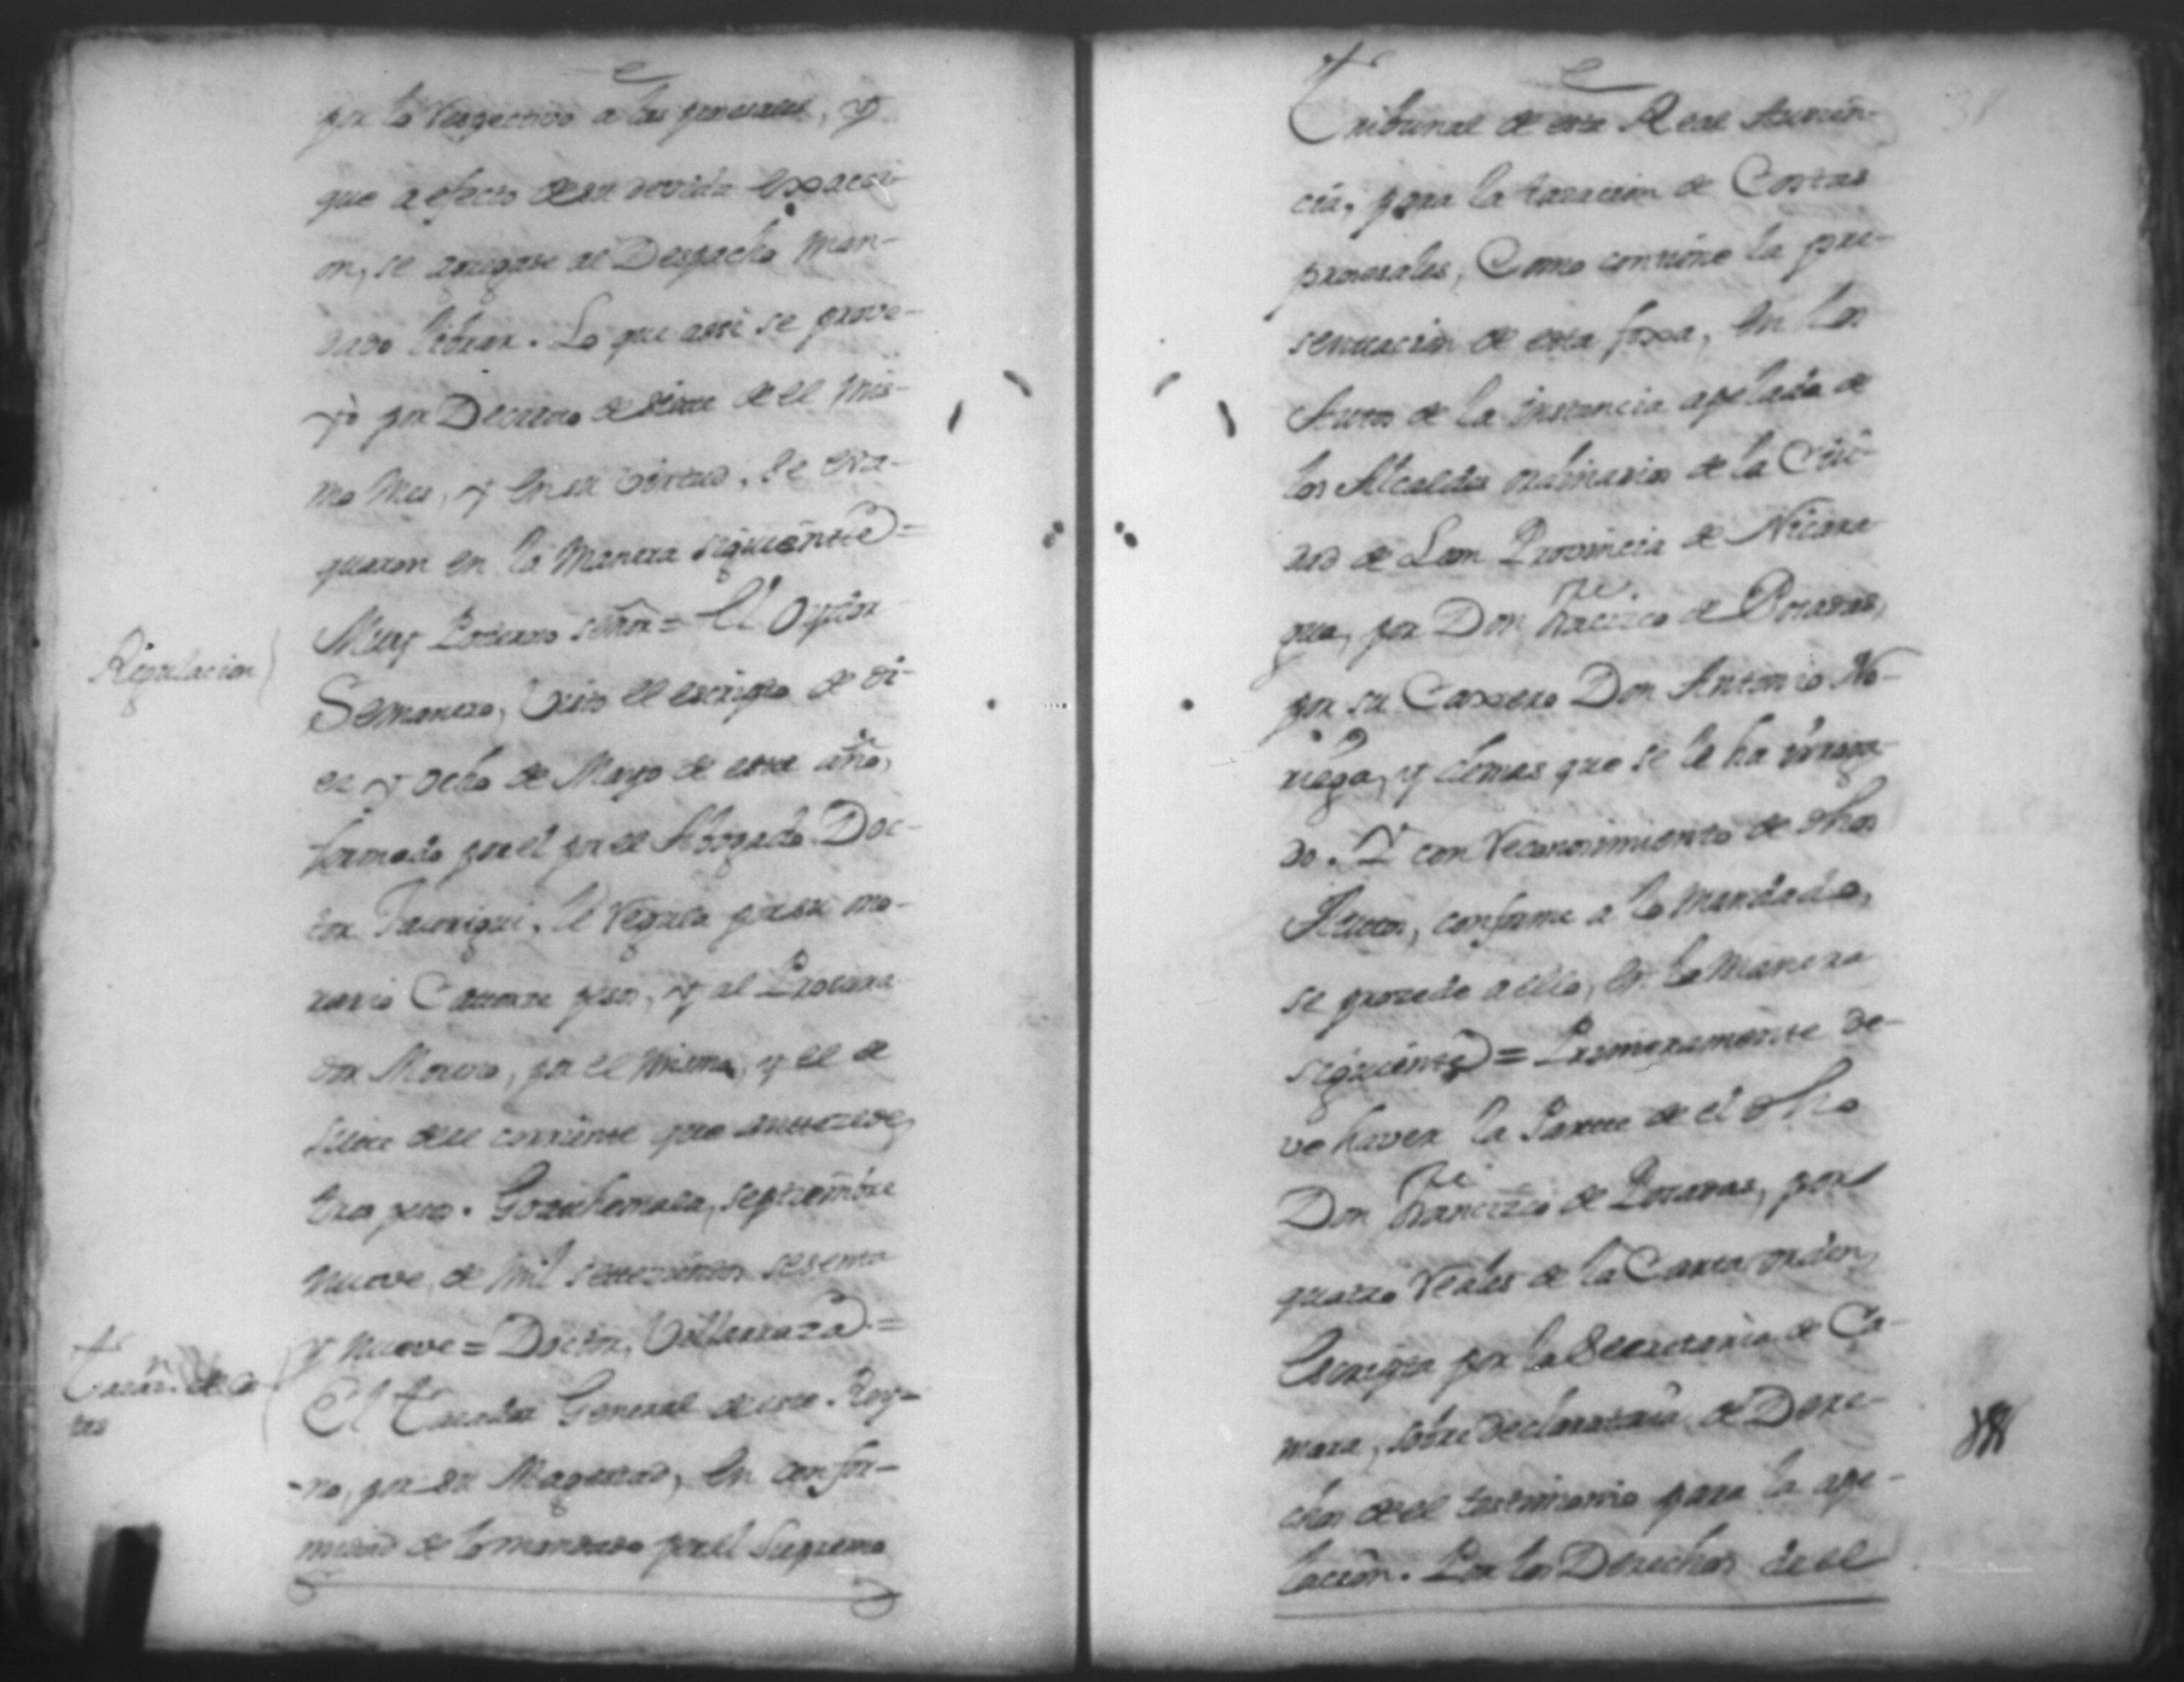 por lo respectivo a las procesales, y
que a efecto de su devida exacci-
on, se agregase al Despacho man-
dado librar. Lo que assi se prove-
yo por Decreto de siete de el mis-
mo mes, y en su virtud, se eva-
quaron en la manera siguiente =
Regulacion
Muy Poderoso señor = El Oydor
Semanero, visto el escripto de di-
ez y ocho de Mayo de este año,
formado por el por el Abogado Doc-
tor, le regula por su ono-
rario Cattorze pesos, y al Procura-
dor Moreno, por el mismo, y el de
siete de el corriente que antezede,
tres pesos. Goathemala, septiembre
nueve, de mil settezientos sesenta
y nueve = Doctor, Villarraza =
Tazaon. de Cos
tas
El Tazador General de este Rey-
no, por su Magestad, en confor-
midad de lo mandado por el Supremo
Tribunal de esta Real Audien-
cia, para la tazacion de Costas
procesales, Como contiene la pre-
sentacion de esta foxa, en los
Autos de la instancia apelada de
los Alcaldes ordinarios de la Ciu-
dad de Leon Provincia de Nicara
gua, por Don Francisco de Posadas,
por su Caxero Don Antonio No-
riega, y demas que se le ha irroga-
do. Y con reconosimiento de dhos
Autos, conforme a lo mandado,
se procede a ello, en la manera
siguiente = Primeramente de-
ve haver la Parte de el dho
Don Francisco de Posadas, por
quatro reales de la Carta orden,
Escripta por la Secretaria de Ca-
mara, sobre declaratoria de Dere-
chos de el testimonio para la ape-
lacion. Por los Derechos de el